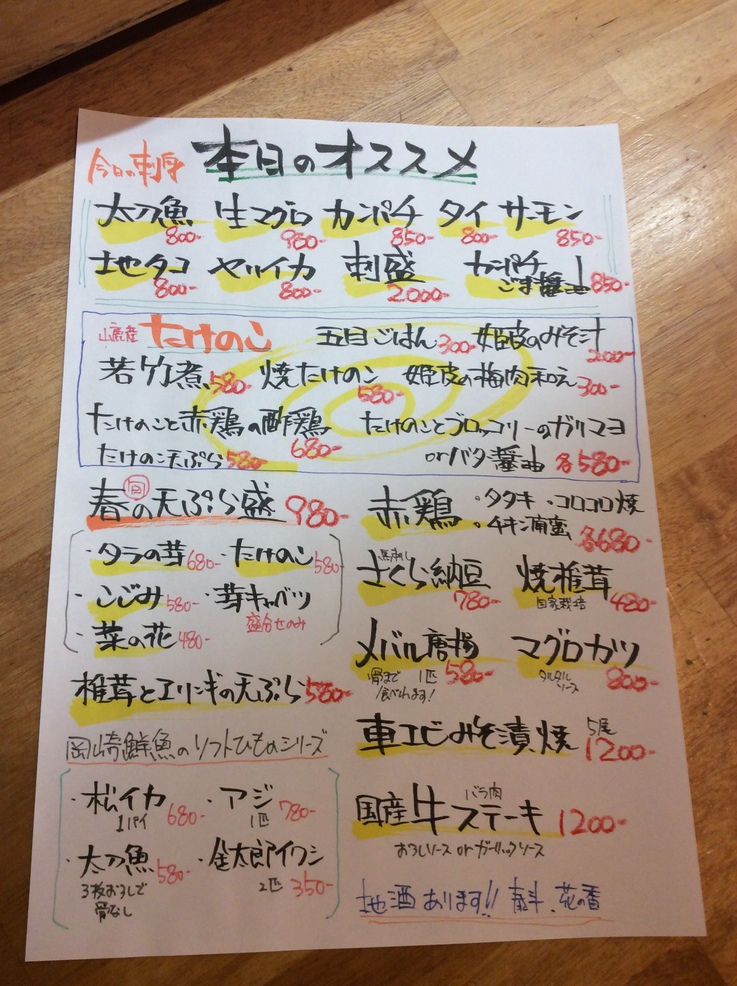 今日の刺身 本日のオススメ
太刀魚 800- 生マグロ 980- カンパチ 850- タイ 800- サーモン 850-
地タコ 800- ヤリイカ 800- 刺盛 2,000- カンパチごま醤油 850-
山鹿産 たけのこ 五目ごはん 300- 姫皮のみそ汁 200-
若竹煮 580- 焼たけのこ 580- 姫皮の梅肉和え 300-
たけのこと赤鶏の酢鶏 680- たけのことブロッコリーのガリマヨ
たけのこ天ぷら 580- orバタ醤油 各580-
春の天ぷら盛 980- 赤鶏 ・タタキ ・コロコロ焼
・チキン南蛮 各680-
・タラの芽 680- ・たけのこ 580-
・こごみ 580- ・芽キャベツ
盛合せのみ
・菜の花 480-
馬刺し
さくら納豆 780- 焼椎茸 480-
自家栽培
メバル唐揚 580- マグロカツ 800-
骨まで 1匹 タルタル
食べれます! ソース
椎茸とエリンギの天ぷら 580-
車エビみそ漬焼 5尾 1200-
岡崎鮮魚のソフトひものシリーズ
・松イカ 680- ・アジ 780-
1パイ 1匹
・太刀魚 580- ・金太郎イワシ
3枚おろしで 2匹 350-
骨なし
バラ肉
国産牛ステーキ 1200-
おろしソース or ガーリックソース
地酒あります!! 花の香